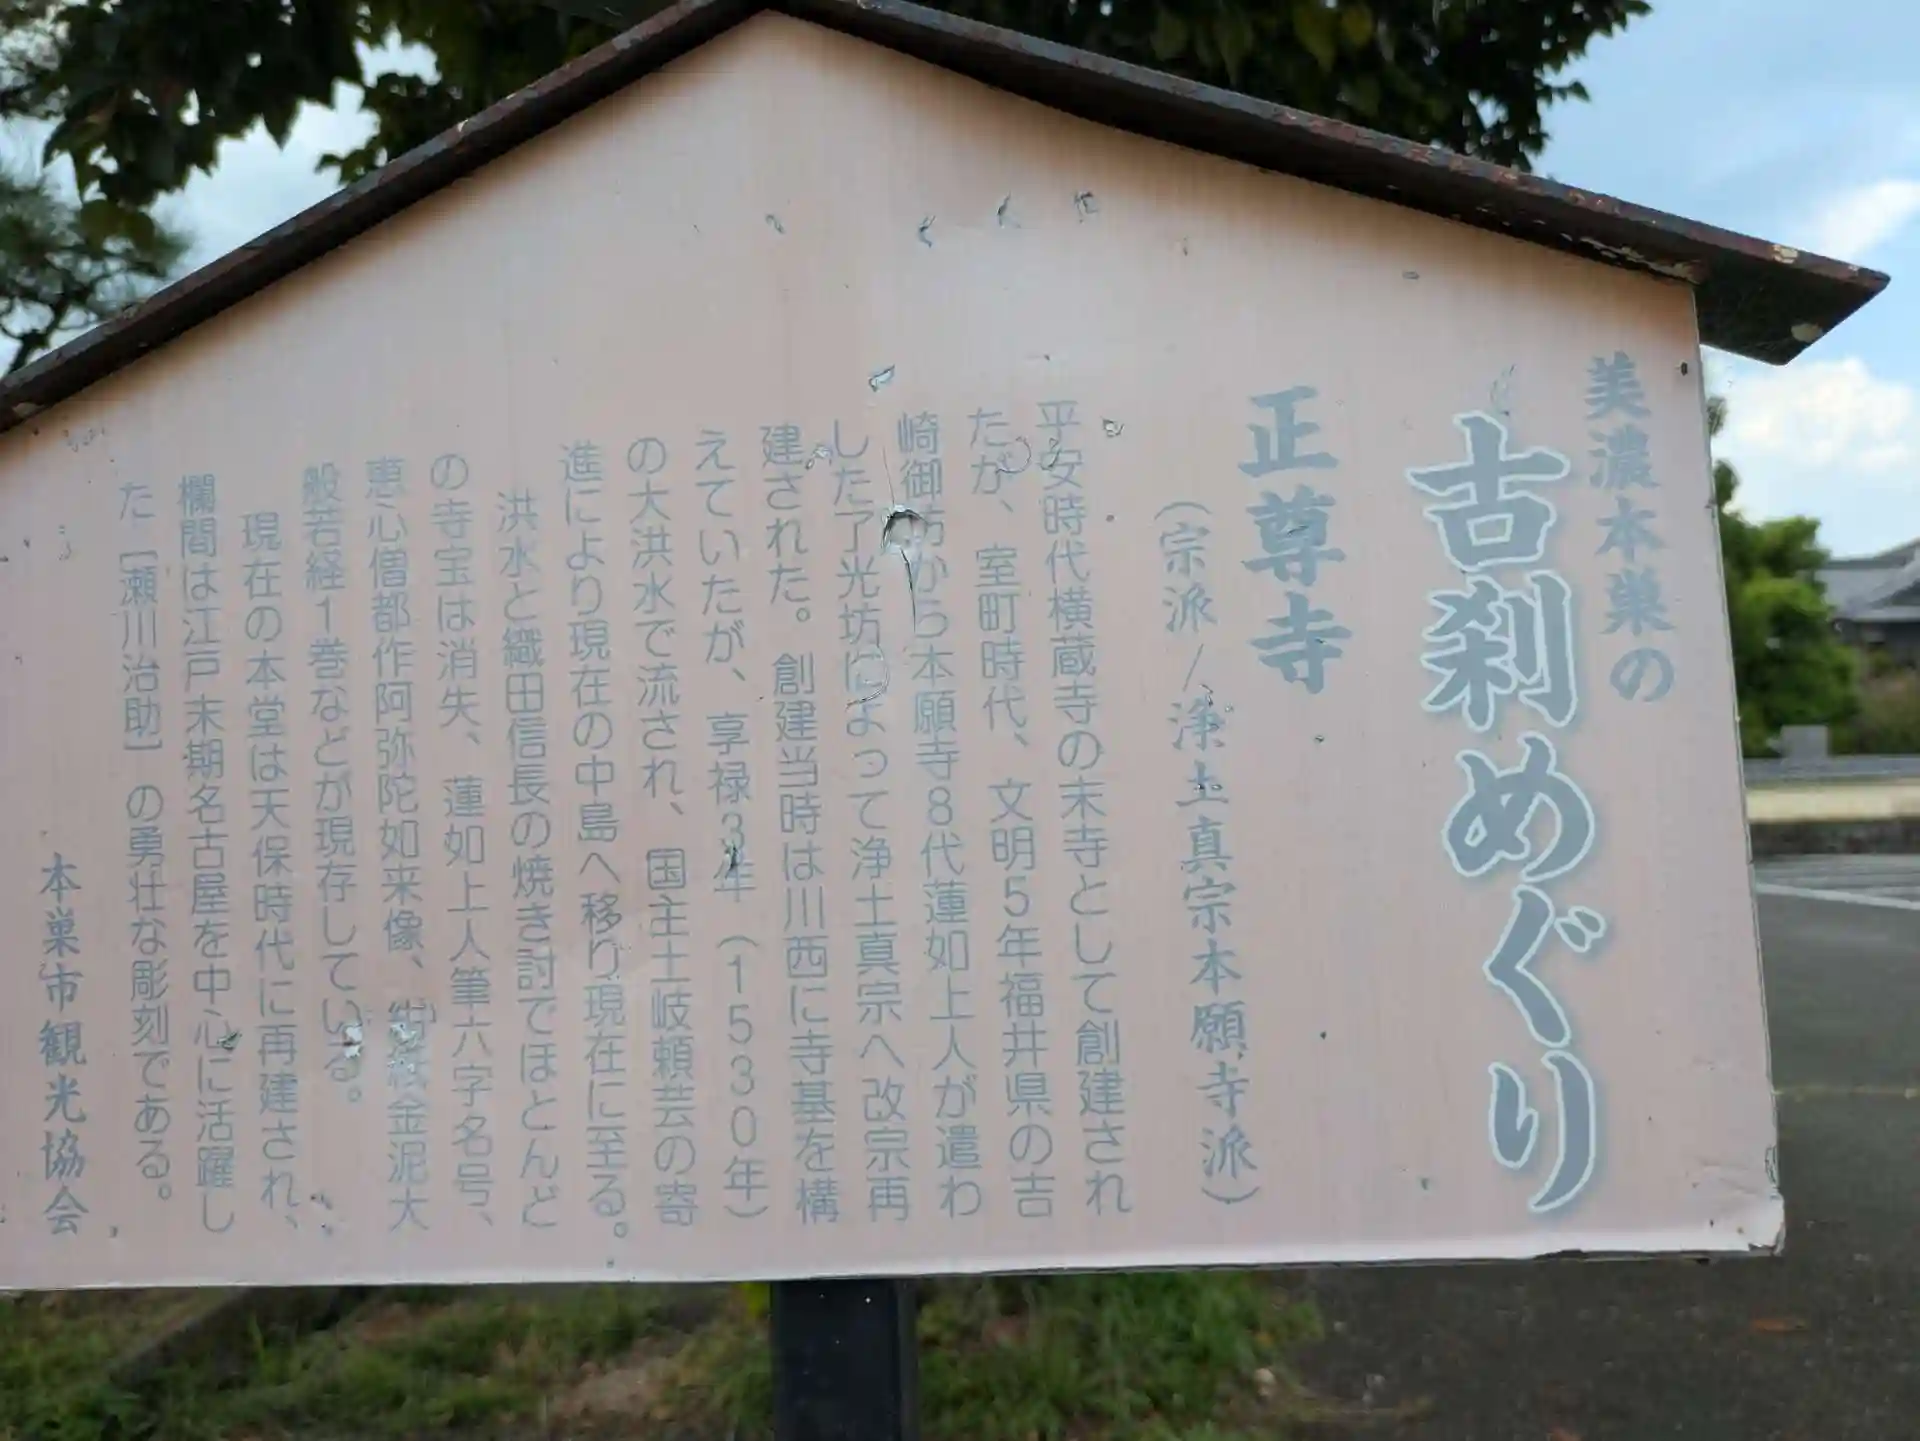 美濃本巣の
古刹めぐり
正尊寺
（宗派／浄土真宗本願寺派）
平安時代横蔵寺の末寺として創建され
たが、室町時代、文明5年福井県の吉
崎御坊から本願寺8代蓮如上人が遣わ
した了光坊によって浄土真宗へ改宗再
建された。創建当時は川西に寺基を構
えていたが、享禄3年（1530年）
の大洪水で流され、国主土岐頼芸の寄
進により現在の中島へ移り現在に至る。
洪水と織田信長の焼き討でほとんど
の寺宝は消失、蓮如上人筆六字名号、
恵心僧都作阿弥陀如来像、紺紙金泥大
般若経1巻などが現存している。
現在の本堂は天保時代に再建され、
欄間は江戸末期名古屋を中心に活躍し
た［瀬川治助］の勇壮な彫刻である。
本巣市観光協会